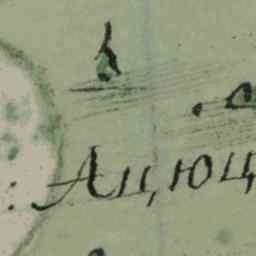 Ацюц